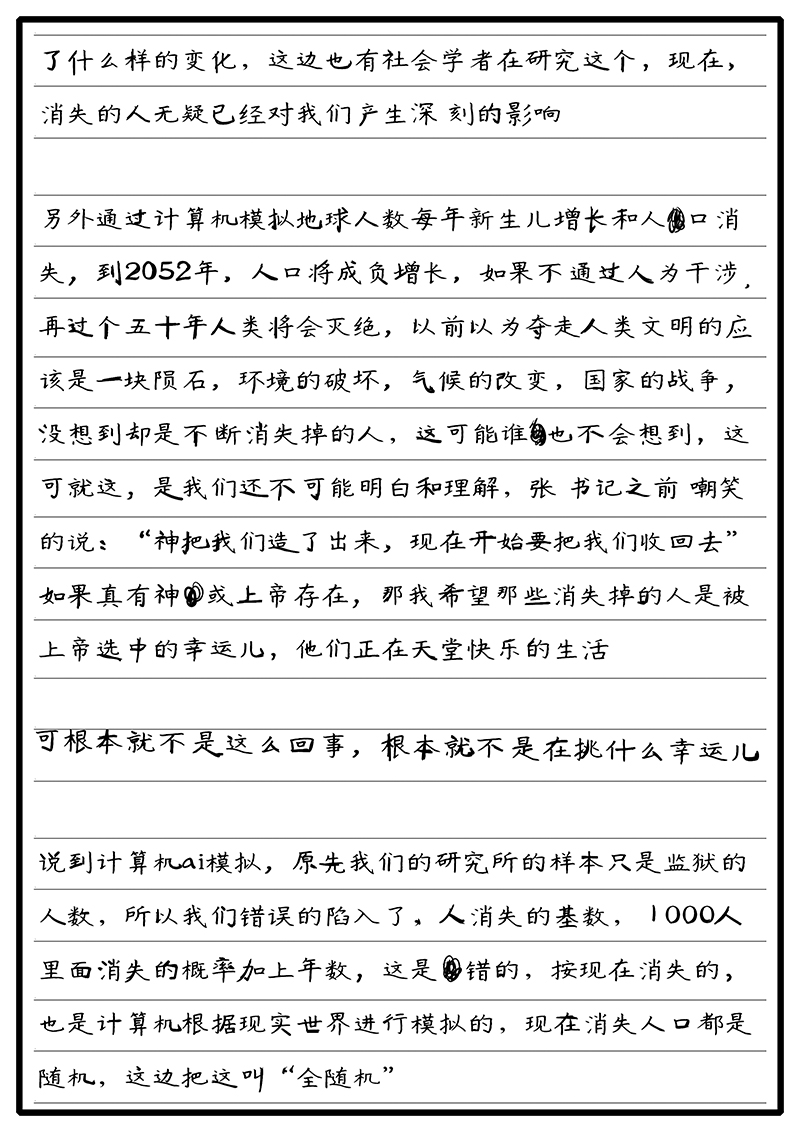 了什么样的变化，这边也有社会学者在研究这个，现在，
消失的人无疑已经对我们产生深 刻的影响
另外通过计算机模拟地球人数每年新生儿增长和人口消
失，到2052年，人口将成负增长，如果不通过人为干涉，
再过个五十年人类将会灭绝，以前以为夺走人类文明的应
该是一块陨石，环境的破坏，气候的改变，国家的战争，
没想到却是不断消失掉的人，这可能谁也不会想到，这
可就这，是我们还不可能明白和理解，张 书记之前 嘲笑
的说：“神把我们造了出来，现在开始要把我们收回去”
如果真有神或上帝存在，那我希望那些消失掉的人是被
上帝选中的幸运儿，他们正在天堂快乐的生活
可根本就不是这么回事，根本就不是在挑什么幸运儿
说到计算机ai模拟，原先我们的研究所的样本只是监狱的
人数，所以我们错误的陷入了、人消失的基数，1000人
里面消失的概率加上年数，这是错的，按现在消失的，
也是计算机根据现实世界进行模拟的，现在消失人口都是
随机，这边把这叫“全随机”